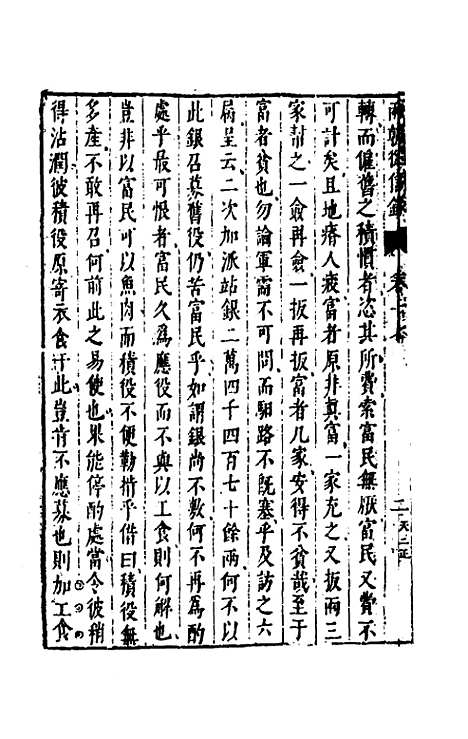 兩朝從信錄 卷
轉而僱舊之積慣者恣其所費索富民無厭富民又貲不
可計矣且地瘠人疲富者原非真富一家充之又扳兩三
家幇之一僉再僉一扳再扳富者几家安得不貧哉至于
富者貧也勿論軍需不可問而驲路不旣塞乎及訪之六
房呈云二次加派站銀二萬四千四百七十餘兩何不以
此銀召募舊役仍苦富民乎如謂銀尚不敷何不再為酌
處乎最可恨者富民久為應役而不與以工食則何解也
豈非以富民可以魚肉而積役不便勒掯乎借曰積役無
多產不敢再召何前此之易使也果能停酌處當令彼稍
得沾潤彼積役原寄衣食于此豈肯不應募也則加工食